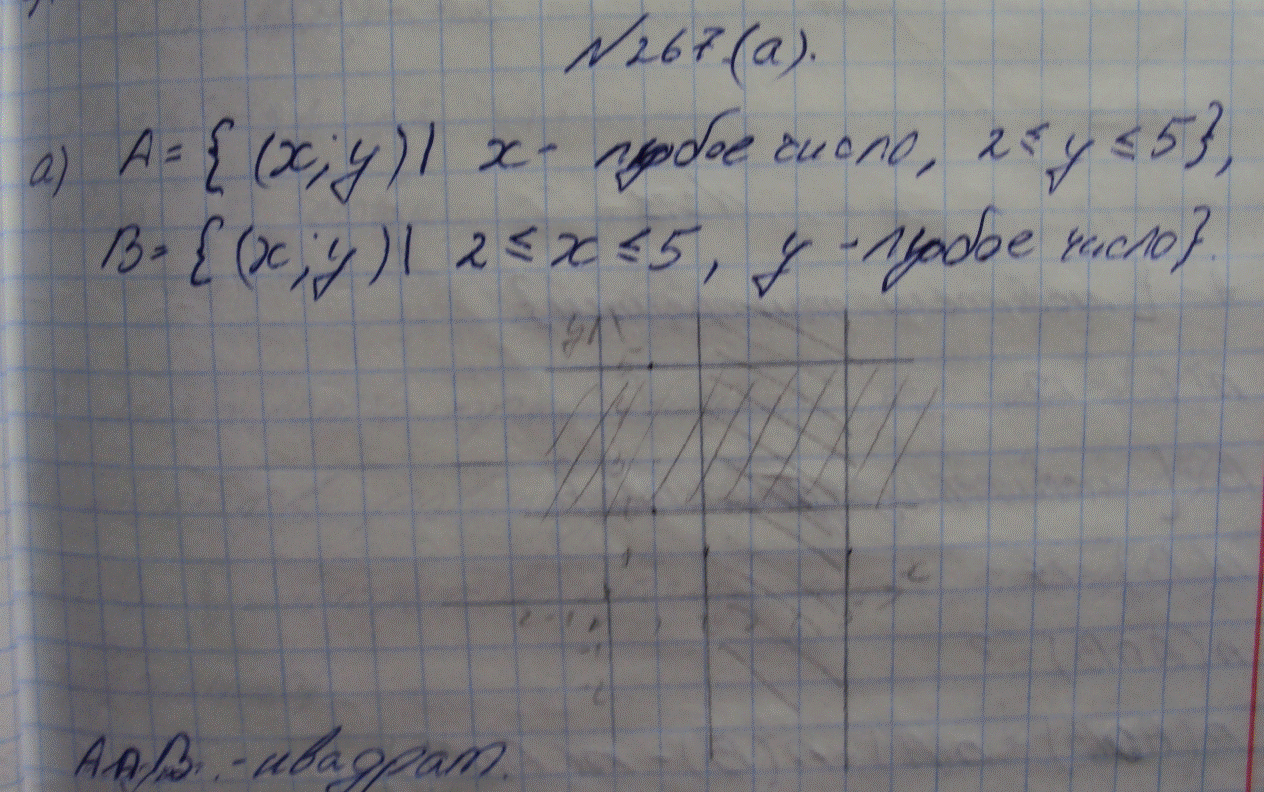 №267.(а).
а) A = {(x; y) | x - любое число, 2 ≤ y ≤ 5},
B = {(x; y) | 2 ≤ x ≤ 5, y - любое число}.
y
5
4
3
1
x
A∩B. - квадрат.